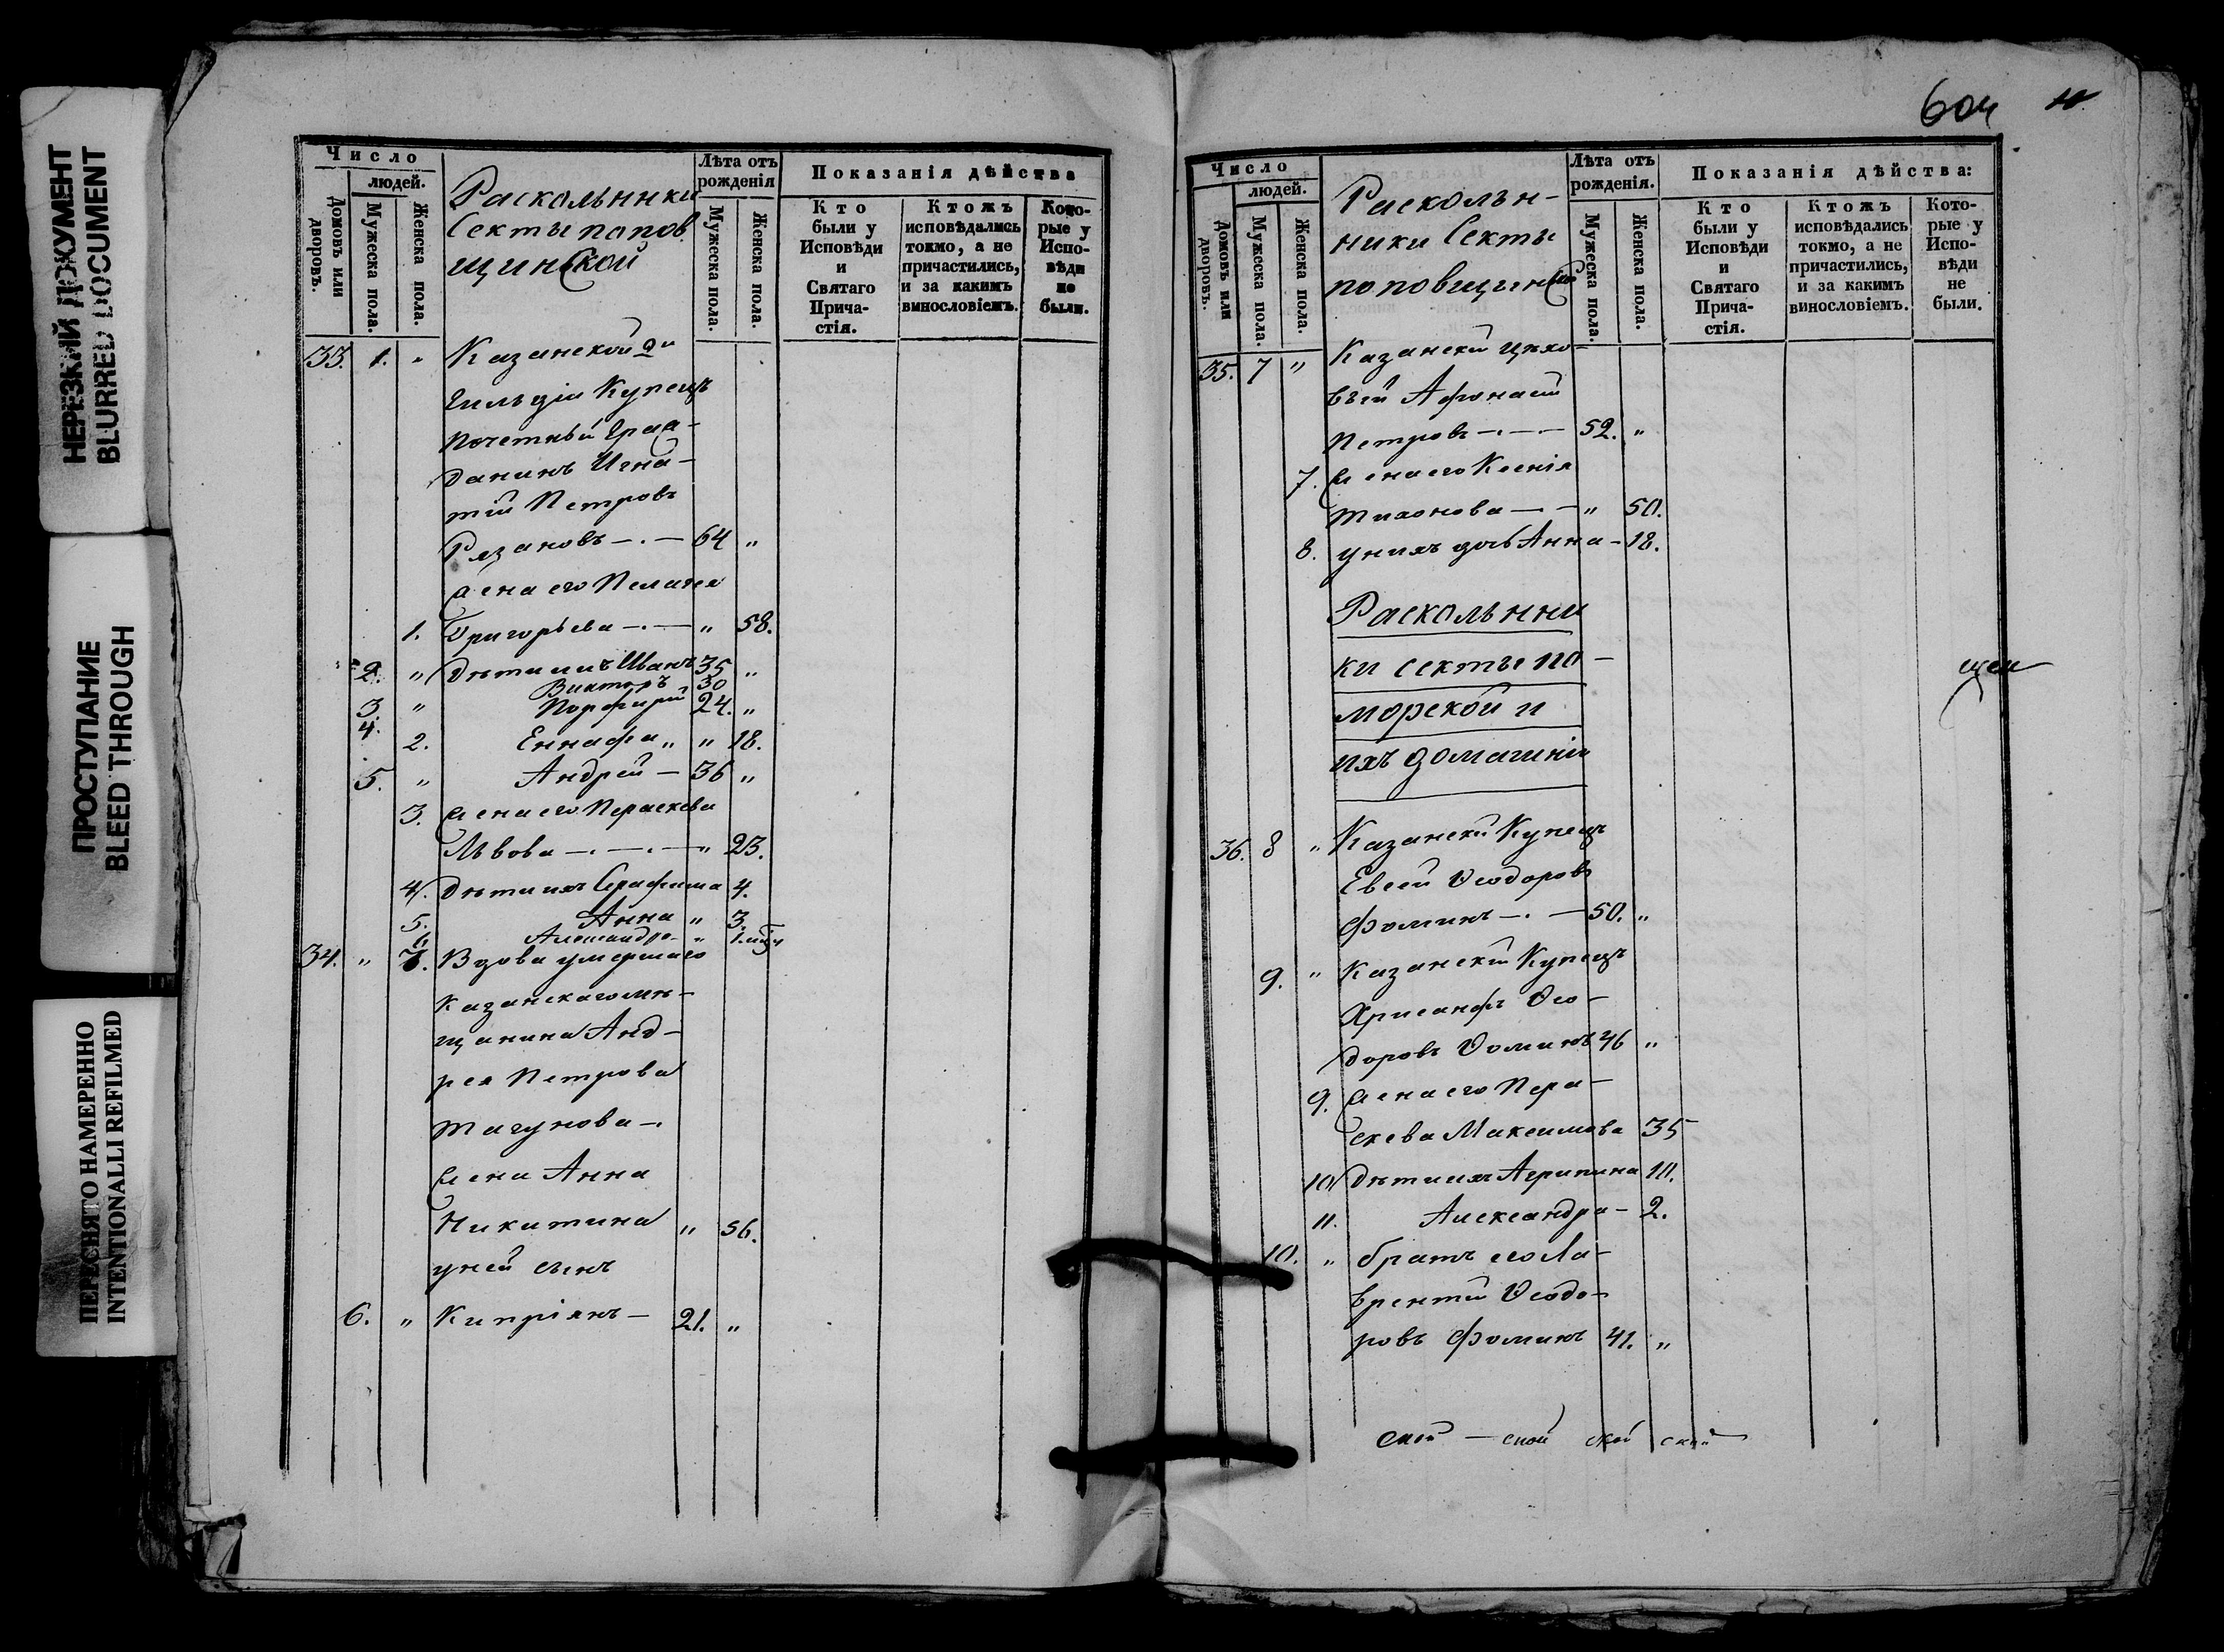 НЕРЕЗКИЙ ДОКУМЕНТ
BLURRED DOCUMENT
ПРОСТУПАНИЕ
BLEED THROUGH
ПЕРЕСНЯТО НАМЕРЕННО
INTENTIONALLI REFILMED
Число
людей.
Домовъ или дворовъ.
Мужеска пола.
Женска пола.
Раскольники
Секты попов
щинской
Лѣта отъ
рожденія
Мужеска пола.
Женска пола.
Показанія дѣйства
Кто
были у
Исповѣди
и
Святаго
Прича-
стія.
Ктожъ
исповѣдались
токмо, а не
причастились,
и за какимъ
винословіемъ.
Кото-
рые у
Испо-
вѣди
не
были.
33. 1. " Казанской 2й
Гильдіи Купецъ
Почетный Граж-
данинъ Игна-
тій Петровъ
Рязановъ —.— 64 "
Жена его Пелагея
1. Григорьева —.— " 58.
2. " Дѣти ихъ Иванъ 35 "
Викторъ 30
3. " Порфирій 24. "
4. 2. Еннафа " " 18.
5. " Андрей — 36 "
3. Жена его Параскева
Львова —.—.— " 23.
4. Дѣти ихъ Серафима 4.
5. Анна " 3.
6. Александра "
34. " 7. Вдова умершаго
Казанскаго мѣ-
щанина Анд-
рея Петрова
Тагунова —.
Жена Анна
Никитина " 56.
у ней сынъ
6. " Кипріянъ — 21. "
604
Число
людей.
Домовъ или дворовъ.
Мужеска пола.
Женска пола.
Расколь-
ники Секты
поповщинской
Лѣта отъ
рожденія.
Мужеска пола.
Женска пола.
Показанія дѣйства:
Кто
были у
Исповѣди
и
Святаго
Прича-
стія.
Ктожъ
исповѣдались
токмо, а не
причастились,
и за какимъ
винословіемъ.
Кото-
рые у
Испо-
вѣди
не
были.
35. 7 " Казанскій цѣхо-
вый Афонасій
Петровъ —.— 52. "
7. Жена его Ксенія
Тихонова —.— " 50.
8. у нихъ дочь Анна — 18.
Раскольни
ки секты по-
морской и
ихъ домашніи
36. 8 " Казанскій Купецъ
Евсей Ѳеодоровъ
Фоминъ —.— 50. "
9. " Казанскій Купецъ
Хрисанфъ Ѳео-
доровъ Ѳоминъ 46 "
9. Жена его Пара-
скева Максимова 35
10 Дѣти ихъ Агрипина 10.
11. Александра — 2.
10. " братъ его Ла-
врентій Ѳеодо-
ровъ Фоминъ 41. "
ской — ской ской ской